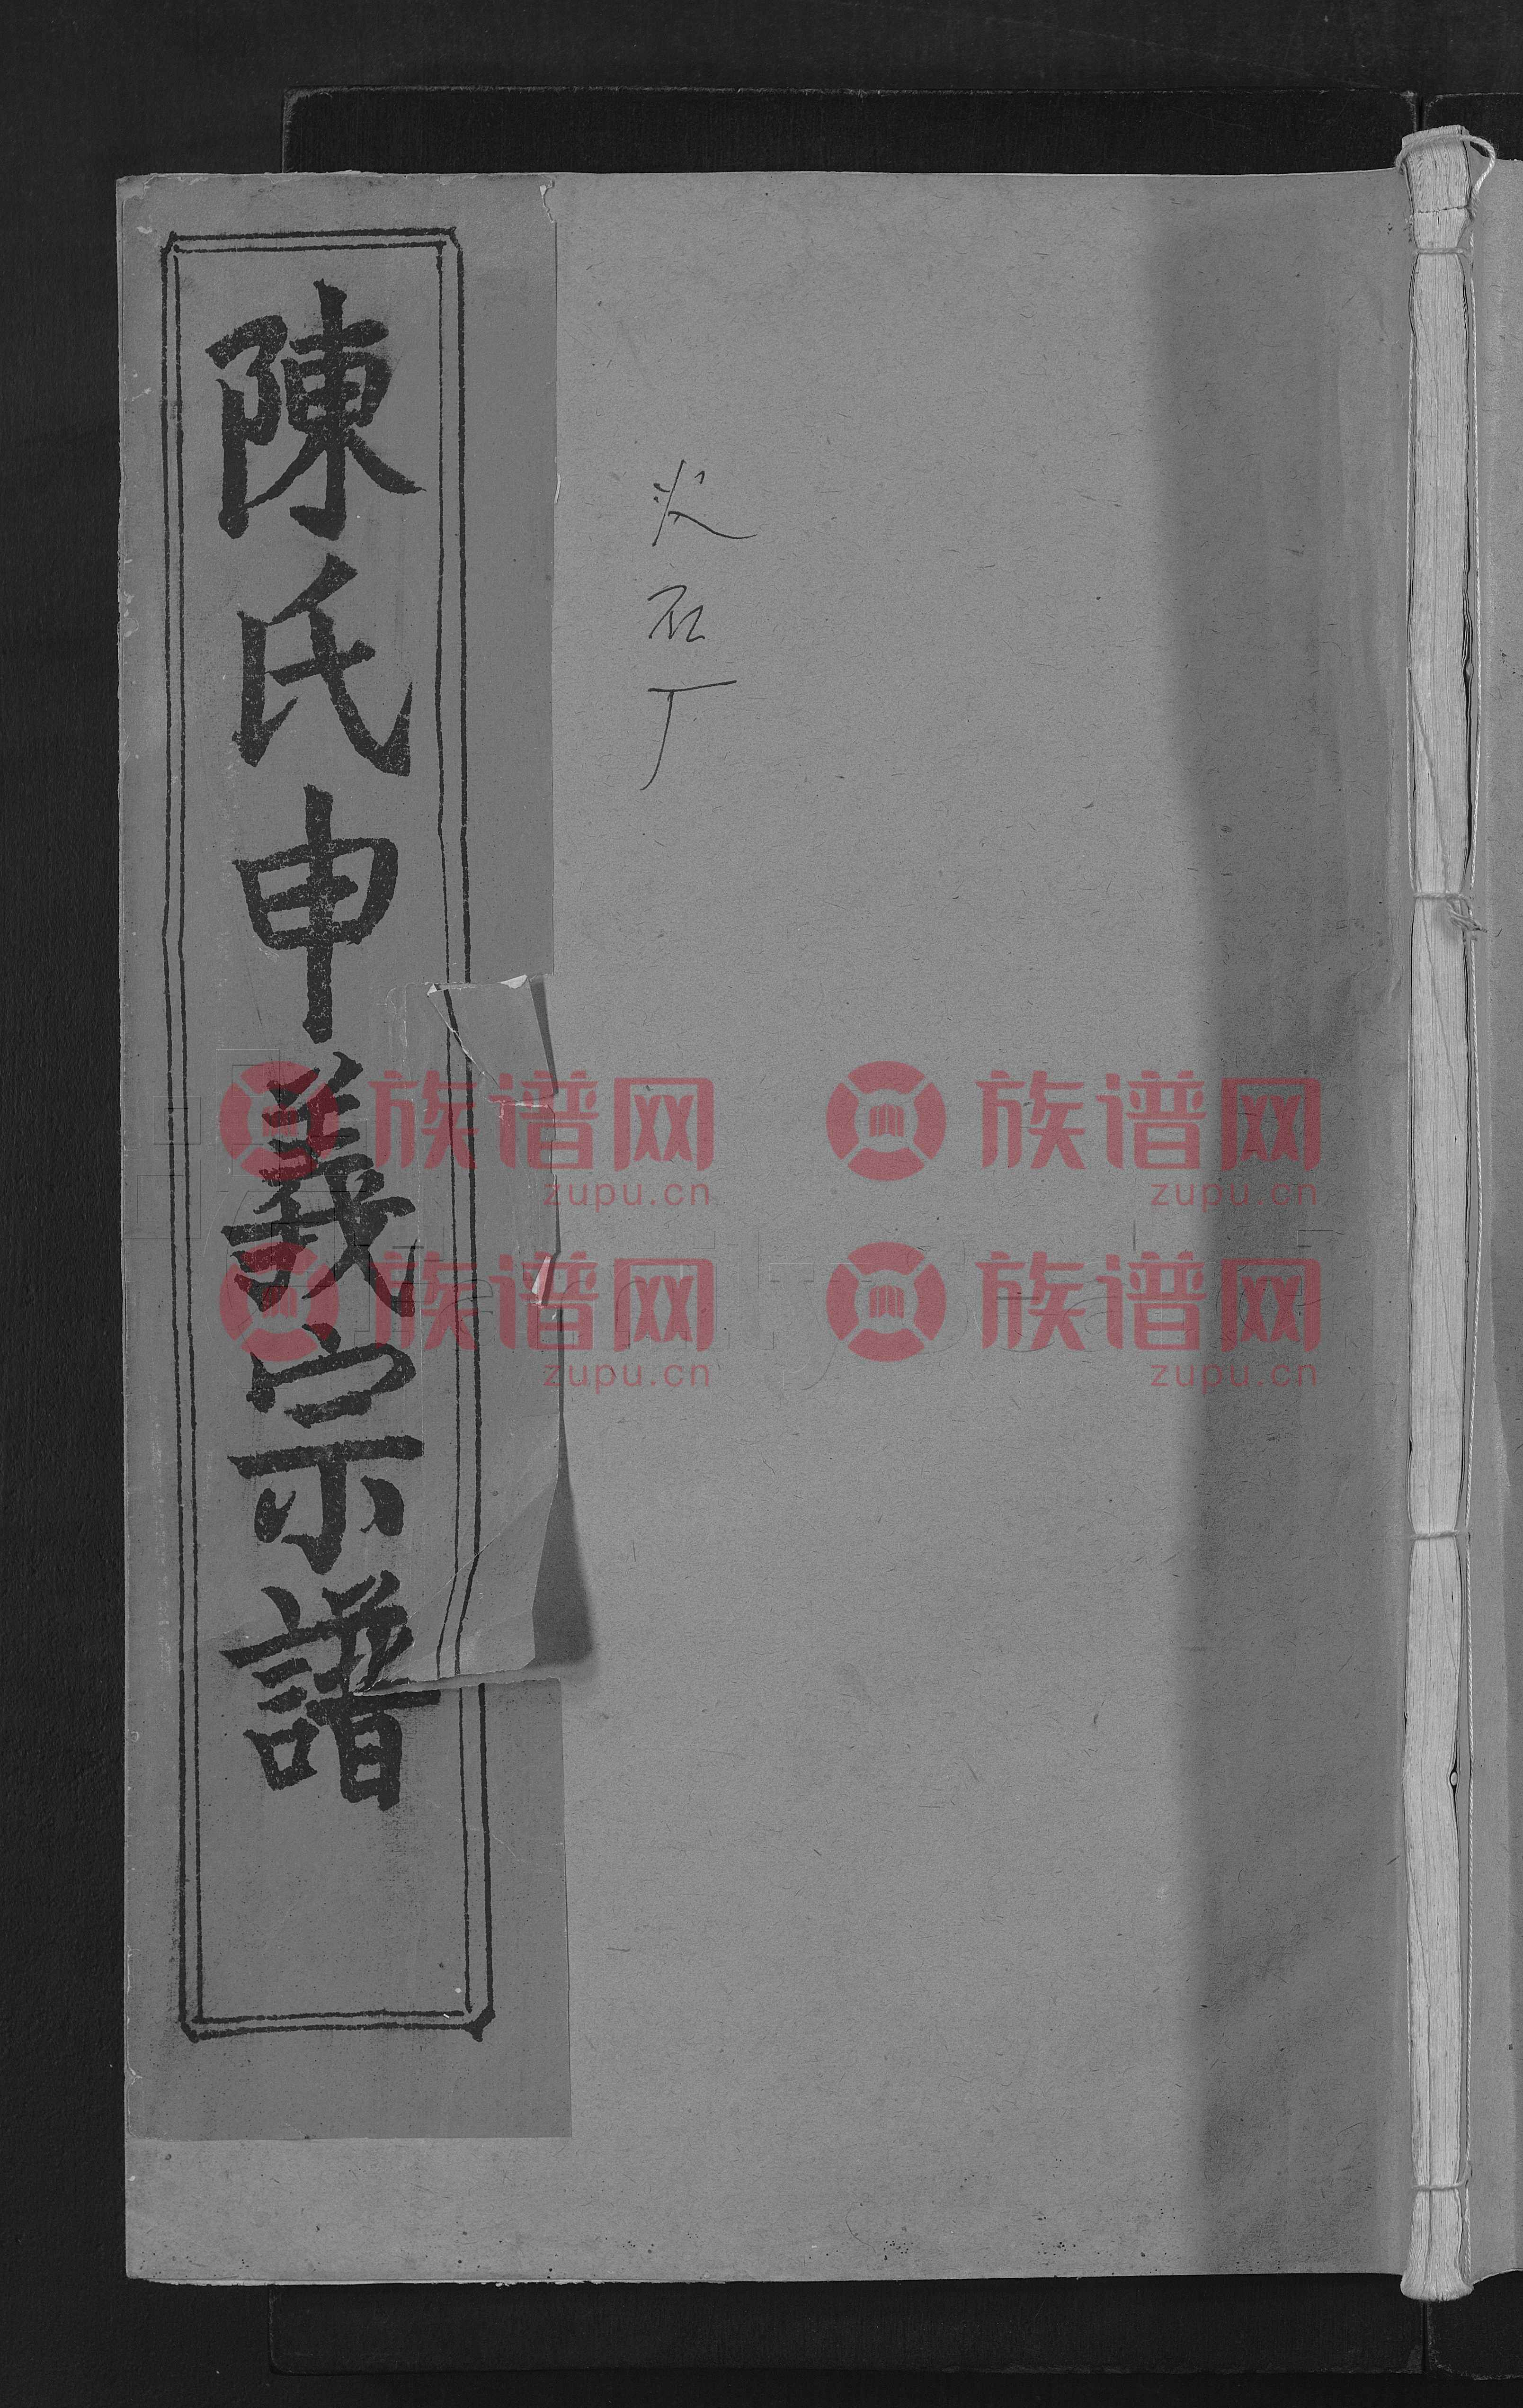 陳氏申義宗譜
族谱网 族谱网
zupu.cn zupu.cn
族谱网 族谱网
zupu.cn zupu.cn